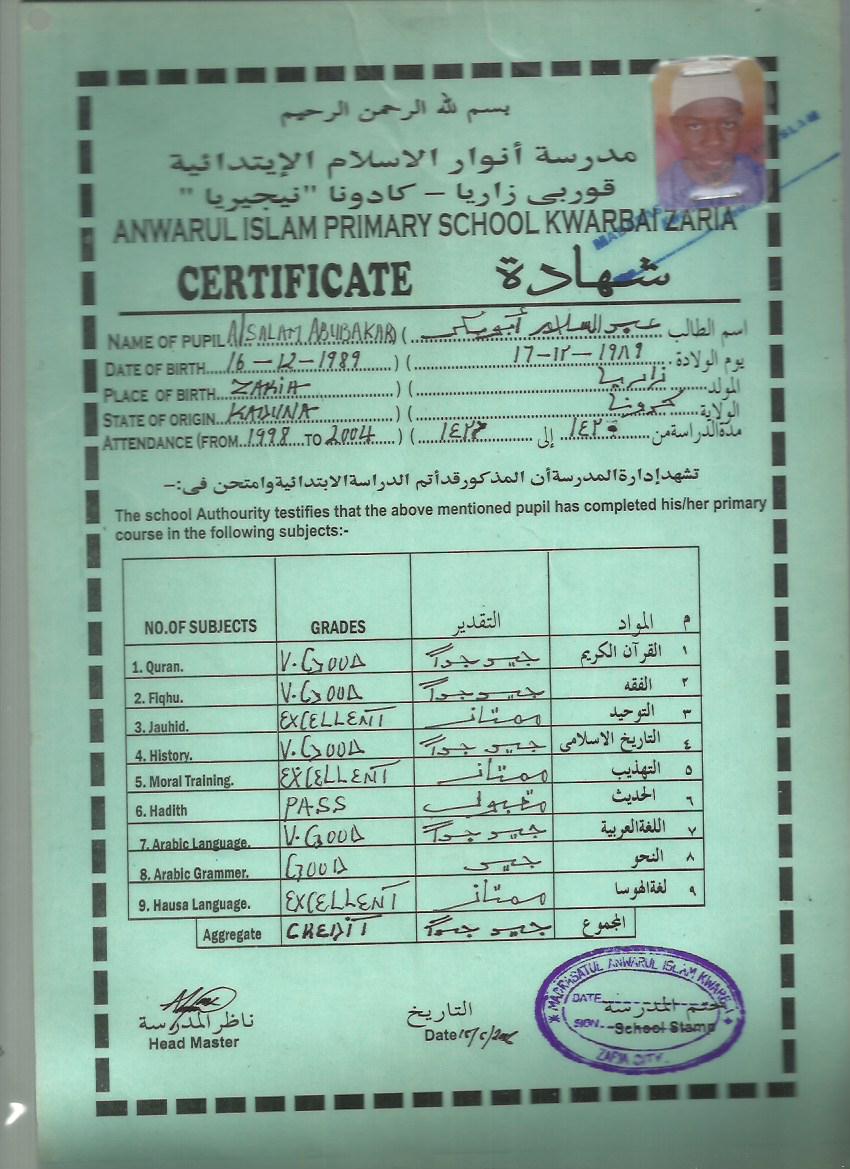 بسم لله الرحمن الرحيم
مدرسة أنوار الاسلام الإيتدائية
قوربى زاريا – كادونا "نيجيريا"
ANWARUL ISLAM PRIMARY SCHOOL KWARBAI ZARIA
CERTIFICATE شهادة
NAME OF PUPIL A/SALAM ABUBAKAR ( عبد السلام أبوبكر ) اسم الطالب
DATE OF BIRTH 16-12-1989 ) ( ١٦-١٢-١٩٨٩ يوم الولادة
PLACE OF BIRTH ZARIA ) ( زاريا المولد
STATE OF ORIGIN KADUNA ) ( كدونا الولاية
ATTENDANCE (FROM 1998 TO 2004 ) ( إلى ١٤٢٠ مدة الدراسة من
تشهد إدارة المدرسة أن المذكور قد أتم الدراسة الابتدائية وامتحن فى:-
The school Authourity testifies that the above mentioned pupil has completed his/her primary
course in the following subjects:-
NO.OF SUBJECTS GRADES التقدير المواد م
1. Quran. V. GOOD جيد جداً القرآن الكريم ١
2. Fiqhu. V. GOOD جيد جداً الفقه ٢
3. Jauhid. EXCELLENT ممتاز التوحيد ٣
4. History. V. GOOD جيد جداً التاريخ الاسلامى ٤
5. Moral Training. EXCELLENT ممتاز التهذيب ٥
6. Hadith PASS مقبول الحديث ٦
7. Arabic Language. V. GOOD جيد جداً اللغة العربية ٧
8. Arabic Grammer. GOOD جيد النحو ٨
9. Hausa Language. EXCELLENT ممتاز لغة الهوسا ٩
Aggregate CREDIT جيد جداً المجموع
ناظر المدرسة
Head Master
التاريخ
Date
MADRASATUL ANWARUL ISLAM KWARBAI
DATE
ختم المدرسة
SIGN.
School Stamp
ZARIA CITY.